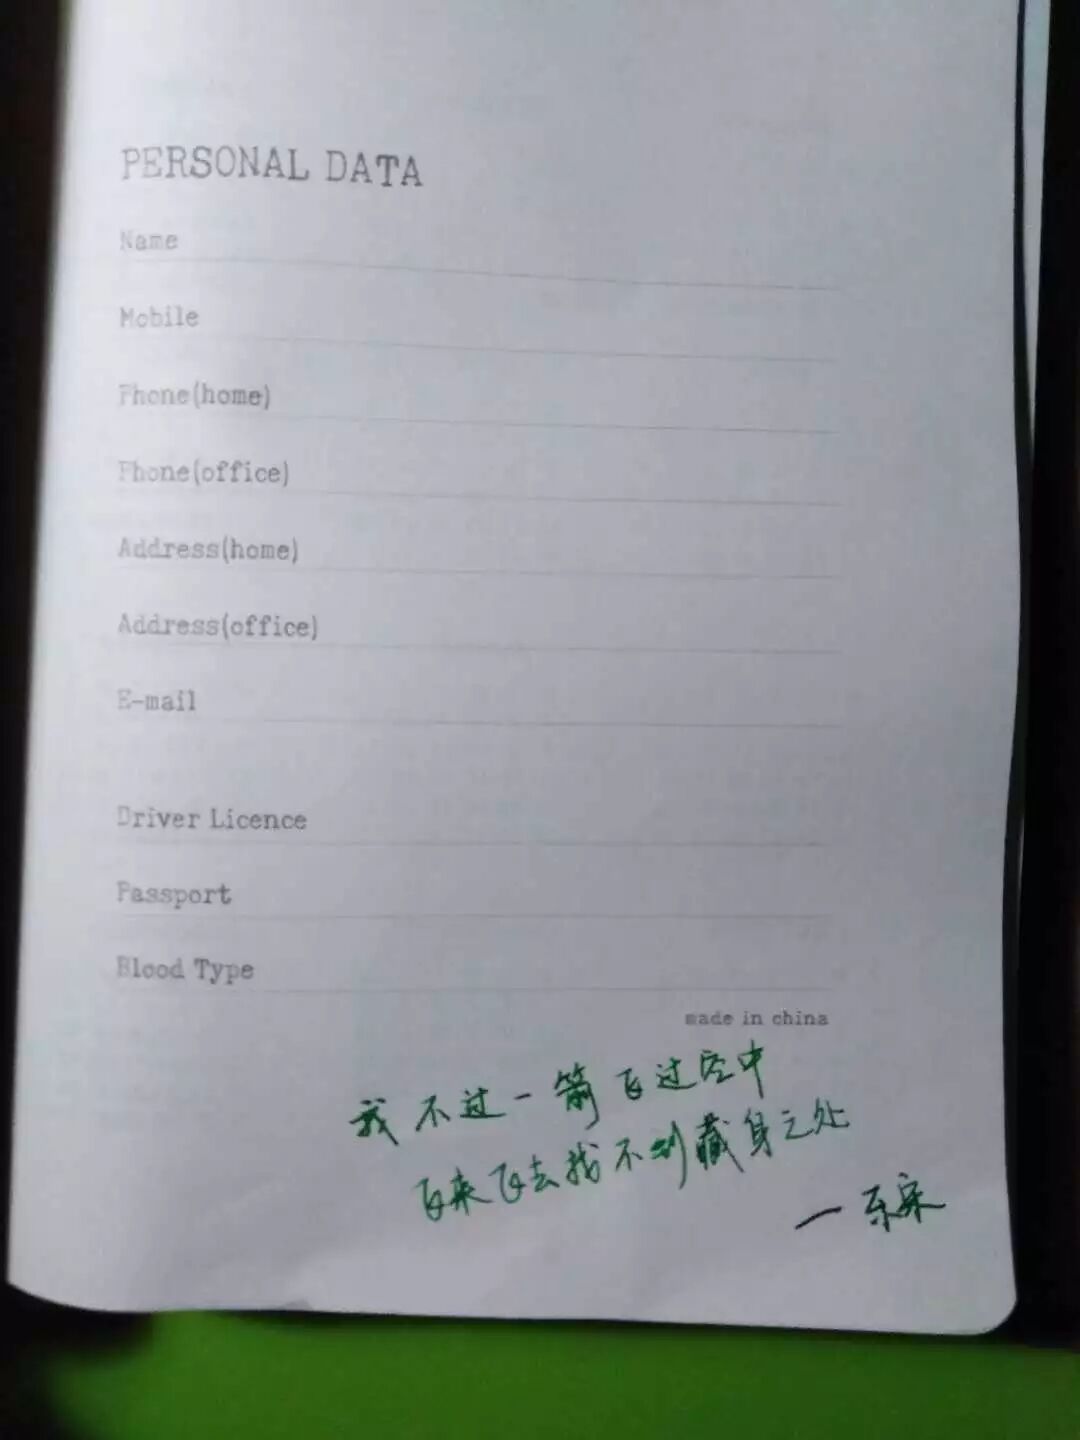 PERSONAL DATA
Name
Mobile
Phone(home)
Phone(office)
Address(home)
Address(office)
E-mail
Driver Licence
Passport
Blood Type
made in china
我不过一箭飞过空中
飞来飞去找不到藏身之处
— 东宋